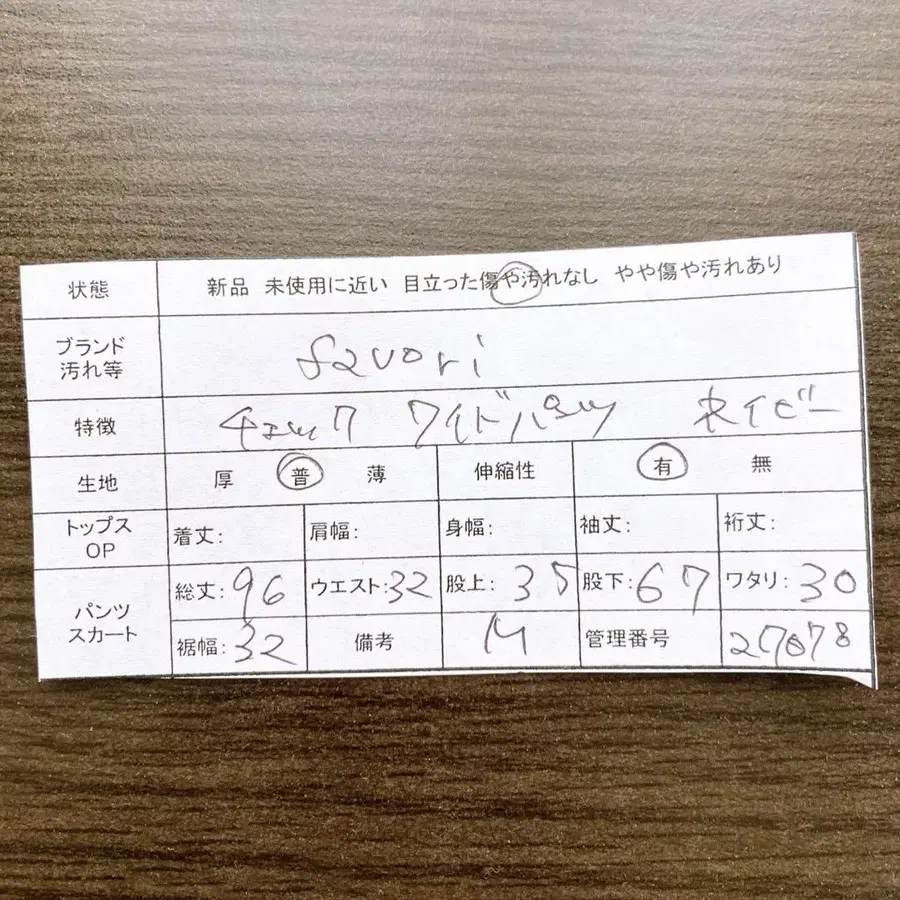 状態 新品 未使用に近い 目立った傷や汚れなし やや傷や汚れあり
ブランド
汚れ等 favori
特徴 チェック ワイドパンツ ネイビー
生地 厚 普 薄 伸縮性 有 無
トップス
OP 着丈: 肩幅: 身幅: 袖丈: 裄丈:
パンツ
スカート 総丈:96 ウエスト:32 股上:35 股下:67 ワタリ:30
裾幅:32 備考 M 管理番号 27078